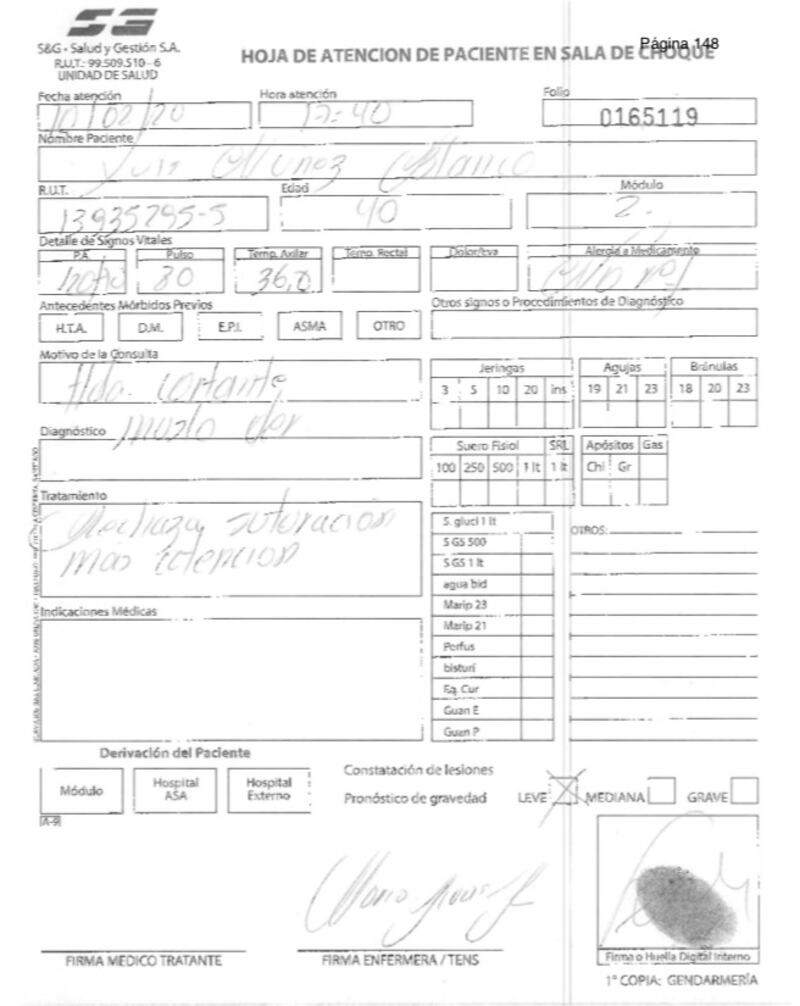 S&G - Salud y Gestión S.A.
R.U.T.: 99.509.510-6
UNIDAD DE SALUD
Página 148
HOJA DE ATENCION DE PACIENTE EN SALA DE CHOQUE
Fecha atención Hora atención Folio
10/02/20 17:40 0165119
Nombre Paciente
Muñoz
R.U.T. Edad Módulo
13935795-5 40 2.
Detalle de Signos Vitales
P.A. Pulso Temp. Axilar Temp. Rectal Dolor/Eva Alergia a Medicamento
80 36,0
Antecedentes Mórbidos Previos Otros signos o Procedimientos de Diagnóstico
H.T.A. D.M. E.P.I. ASMA OTRO
Motivo de la Consulta
Hda. cortante
muslo der
Jeringas Agujas Bránulas
3 5 10 20 ins 19 21 23 18 20 23
Diagnóstico
Suero Fisiol SRL Apósitos Gas
100 250 500 1 lt 1 lt Chi Gr
Tratamiento
Rechaza suturacion
mas atencion
S. gluci 1 lt
S GS 500
S GS 1 lt
agua bid
Marip 23
Marip 21
Perfus
bisturí
Eq. Cur
Guan E
Guan P
OTROS:
Indicaciones Médicas
Derivación del Paciente
Módulo Hospital ASA Hospital Externo
Constatación de lesiones
Pronóstico de gravedad LEVE X MEDIANA GRAVE
FIRMA MEDICO TRATANTE FIRMA ENFERMERA / TENS Firma o Huella Digital Interno
1° COPIA: GENDARMERÍA